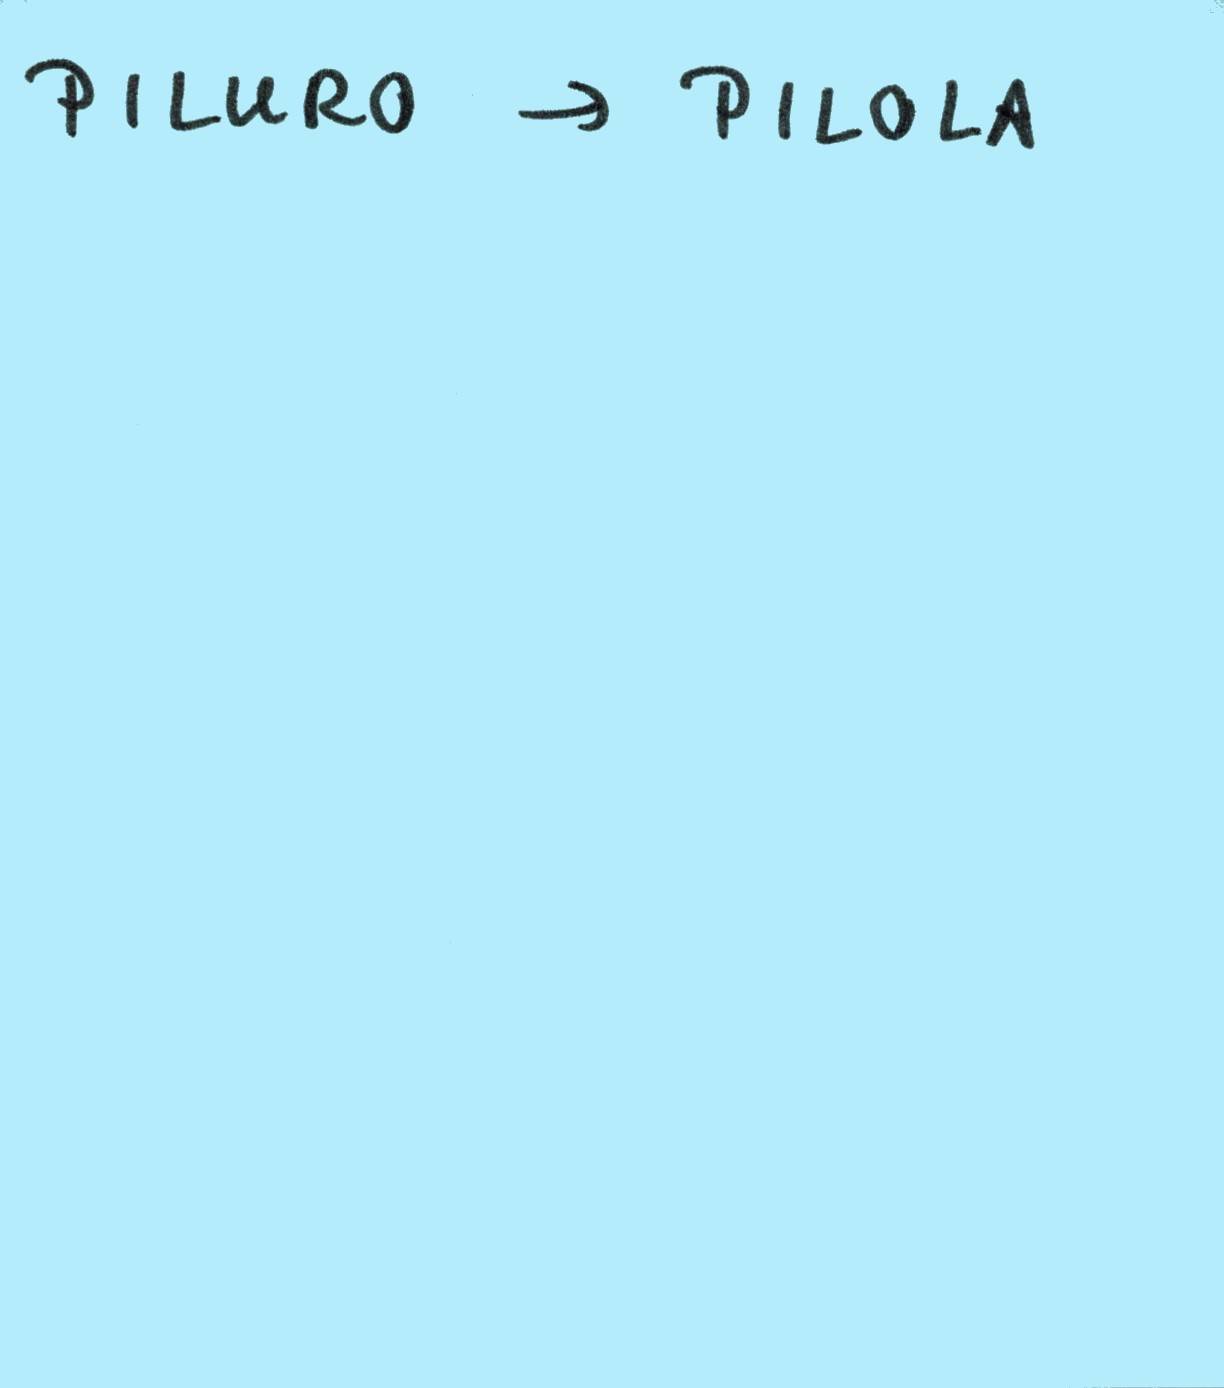 PILURO → PILOLA